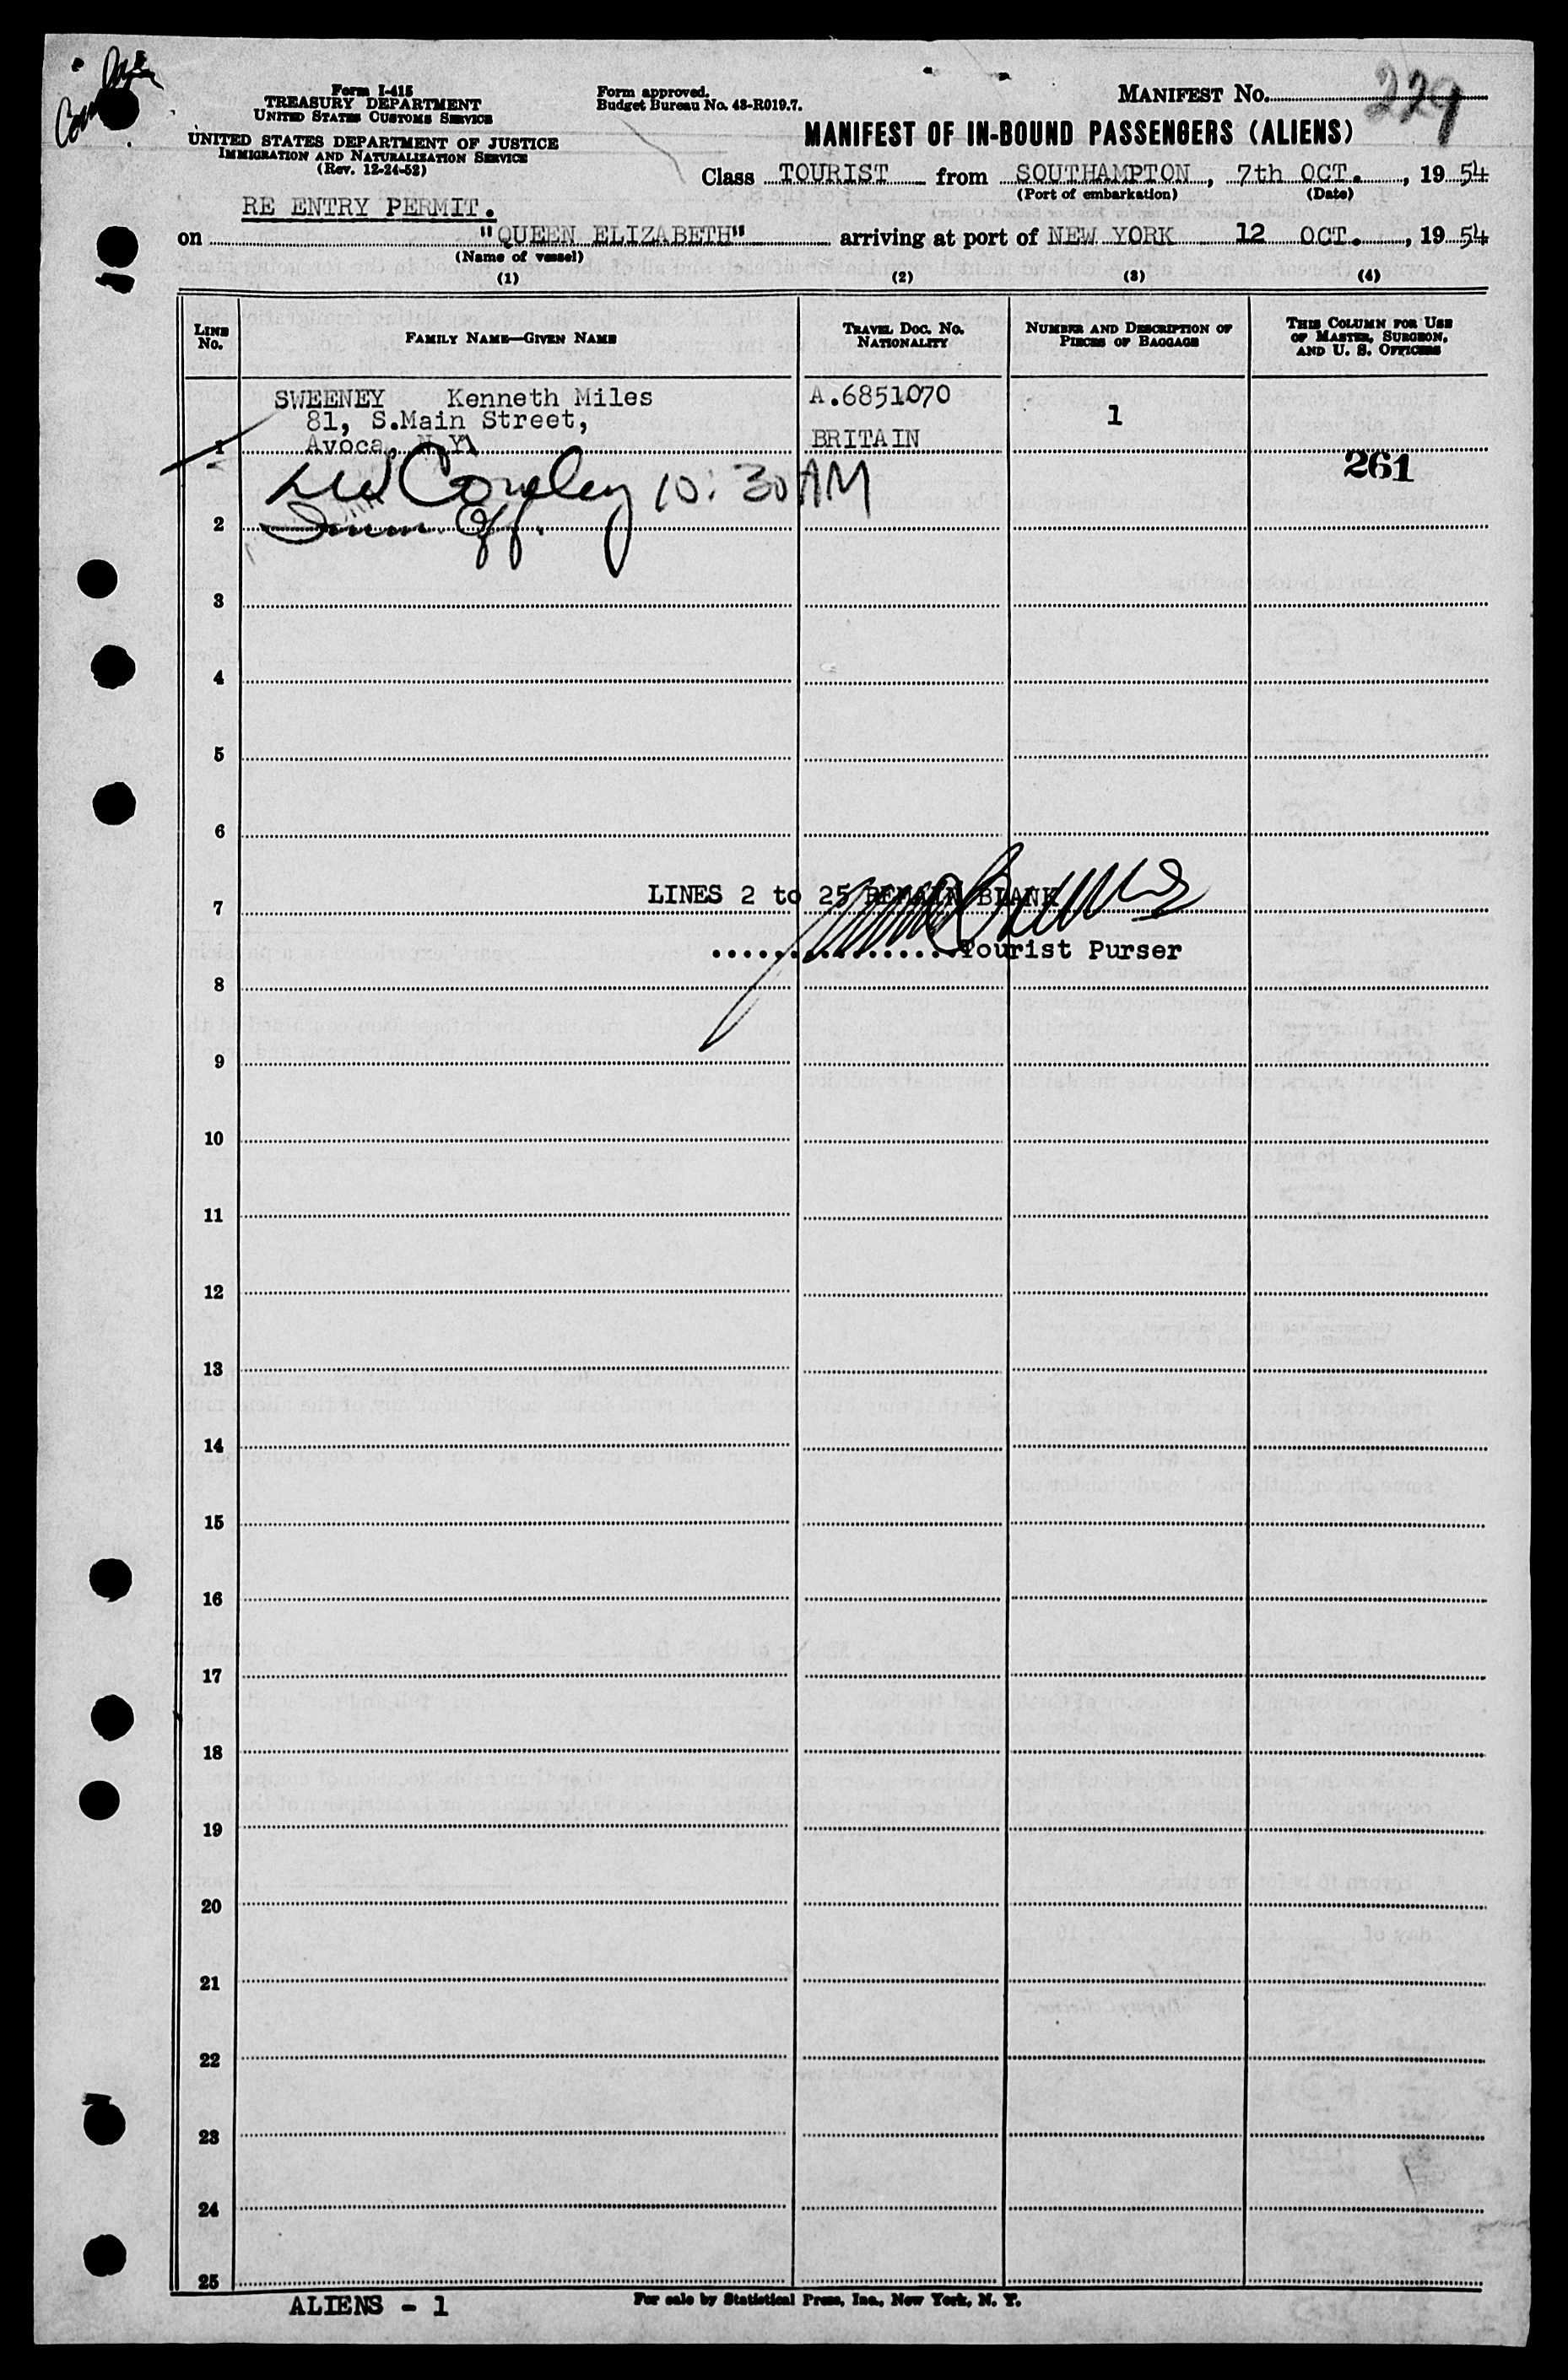 Form I-415
TREASURY DEPARTMENT
UNITED STATES CUSTOMS SERVICE
UNITED STATES DEPARTMENT OF JUSTICE
IMMIGRATION AND NATURALIZATION SERVICE
(Rev. 12-24-52)
Form approved.
Budget Bureau No. 43-R019.7.
MANIFEST NO. 229
MANIFEST OF IN-BOUND PASSENGERS (ALIENS)
Class TOURIST from SOUTHAMPTON, 7th OCT., 1954
(Port of embarkation) (Date)
RE ENTRY PERMIT.
on "QUEEN ELIZABETH" arriving at port of NEW YORK 12 OCT., 1954
(Name of vessel)
(1) (2) (3) (4)
LINE NO.
FAMILY NAME—GIVEN NAME
TRAVEL DOC. NO. NATIONALITY
NUMBER AND DESCRIPTION OF PIECES OF BAGGAGE
THIS COLUMN FOR USE OF MASTER, SURGEON, AND U. S. OFFICERS
SWEENEY Kenneth Miles A.6851070
81, S.Main Street, 1
1 Avoca, N.Y. BRITAIN
261
Cowley 10:30 AM
2 Imm. Off.
3
4
5
6
LINES 2 to 25 REMAIN BLANK
7
Tourist Purser
8
9
10
11
12
13
14
15
16
17
18
19
20
21
22
23
24
25
ALIENS - 1
For sale by Statistical Press, Inc., New York, N. Y.